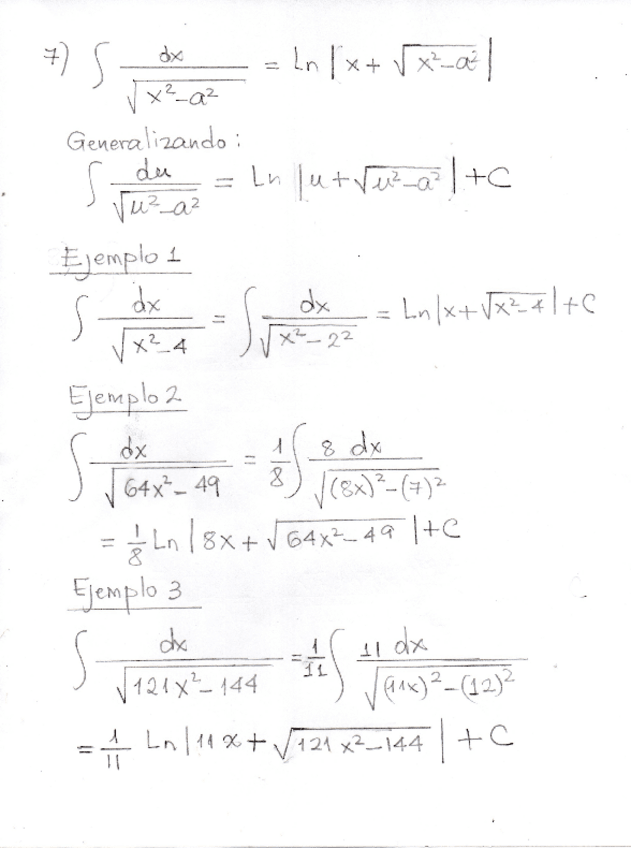 7) ∫ dx / √(x²-a²) = Ln |x + √(x²-a²)|
Generalizando:
∫ du / √(u²-a²) = Ln |u + √(u²-a²)| + C
Ejemplo 1
∫ dx / √(x²-4) = ∫ dx / √(x²-2²) = Ln |x + √(x²-4)| + C
Ejemplo 2
∫ dx / √(64x²-49) = 1/8 ∫ 8 dx / √((8x)²-(7)²)
= 1/8 Ln |8x + √(64x²-49)| + C
Ejemplo 3
∫ dx / √(121x²-144) = 1/11 ∫ 11 dx / √((11x)²-(12)²)
= 1/11 Ln |11x + √(121x²-144)| + C